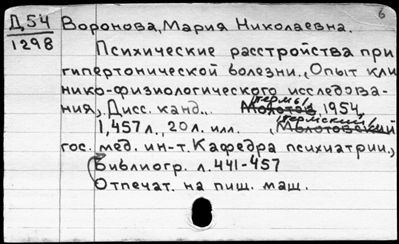 6
Д54 Воронова, Мария Николаевна.
1298
Психические расстройства при
гипертонической болезни. Опыт кли
нико-физиологического исследова-
ния. Дисс. канд.. Пермь, 1954.
1,457 л., 20 л. илл. (Пермский
гос. мед. ин-т. Кафедра психиатрии.)
Библиогр. л. 441-457
Отпечат. на пиш. маш.